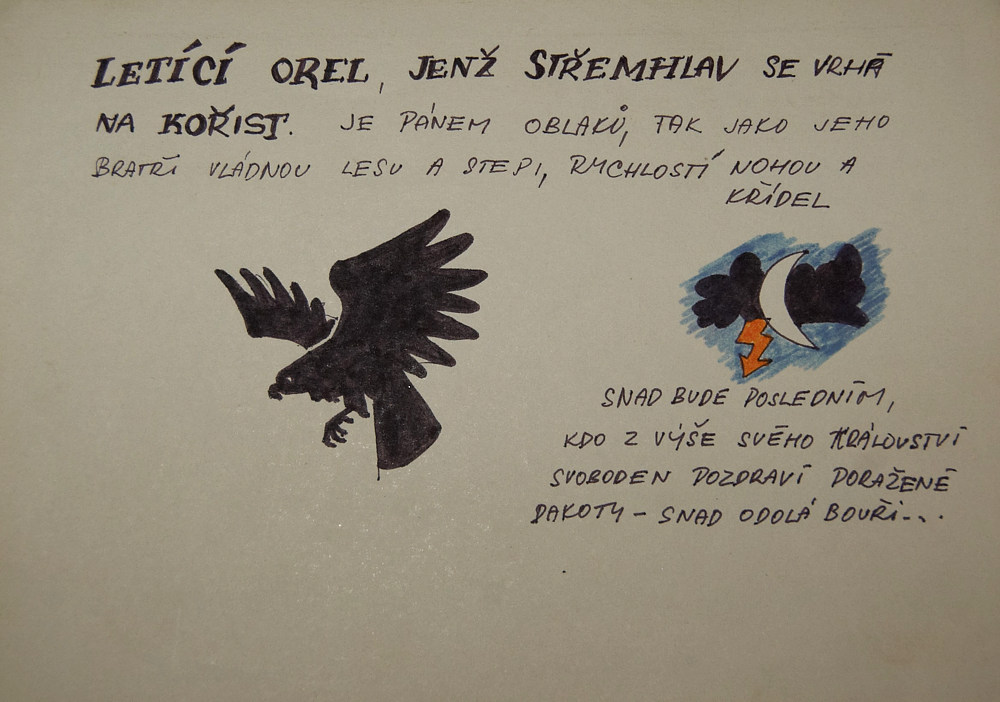 LETÍCÍ OREL, JENŽ STŘEMHLAV SE VRHÁ
NA KOŘIST. JE PÁNEM OBLAKŮ, TAK JAKO JEHO
BRATŘI VLÁDNOU LESU A STEPI, RYCHLOSTÍ NOHOU A
KŘÍDEL
SNAD BUDE POSLEDNÍM,
KDO Z VÝŠE SVÉHO KRÁLOVSTVÍ
SVOBODEN POZDRAVÍ PORAŽENÉ
DAKOTY – SNAD ODOLÁ BOUŘI...